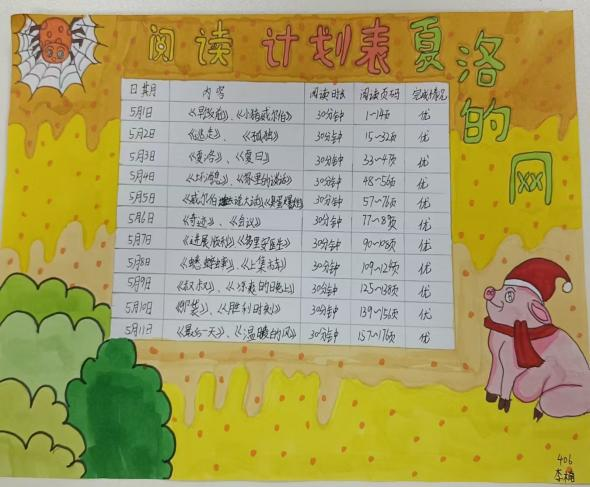 阅读 计划表 夏洛的网
日期 内容 阅读时长 阅读页码 完成情况
5月1日 《早饭前》、《小猪威尔伯》 30分钟 1~14页 优
5月2日 《逃走》、《孤独》 30分钟 15~32页 优
5月3日 《夏洛》、《夏日》 30分钟 优
5月4日 《坏消息》、 30分钟 48~56页 优
5月5日 《威尔伯 30分钟 57~76页 优
5月6日 《奇迹》、《会议》 30分钟 优
5月7日 《进展顺利》 30分钟 优
5月8日 《蟋蟀》、《上集市去》 30分钟 优
5月9日 《凉爽的晚上》 30分钟 125~138页 优
5月10日 《卵袋》、《胜利时刻》 30分钟 139~156页 优
5月11日 《最后一天》、《温暖的风》 30分钟 157~176页 优
406
李楠